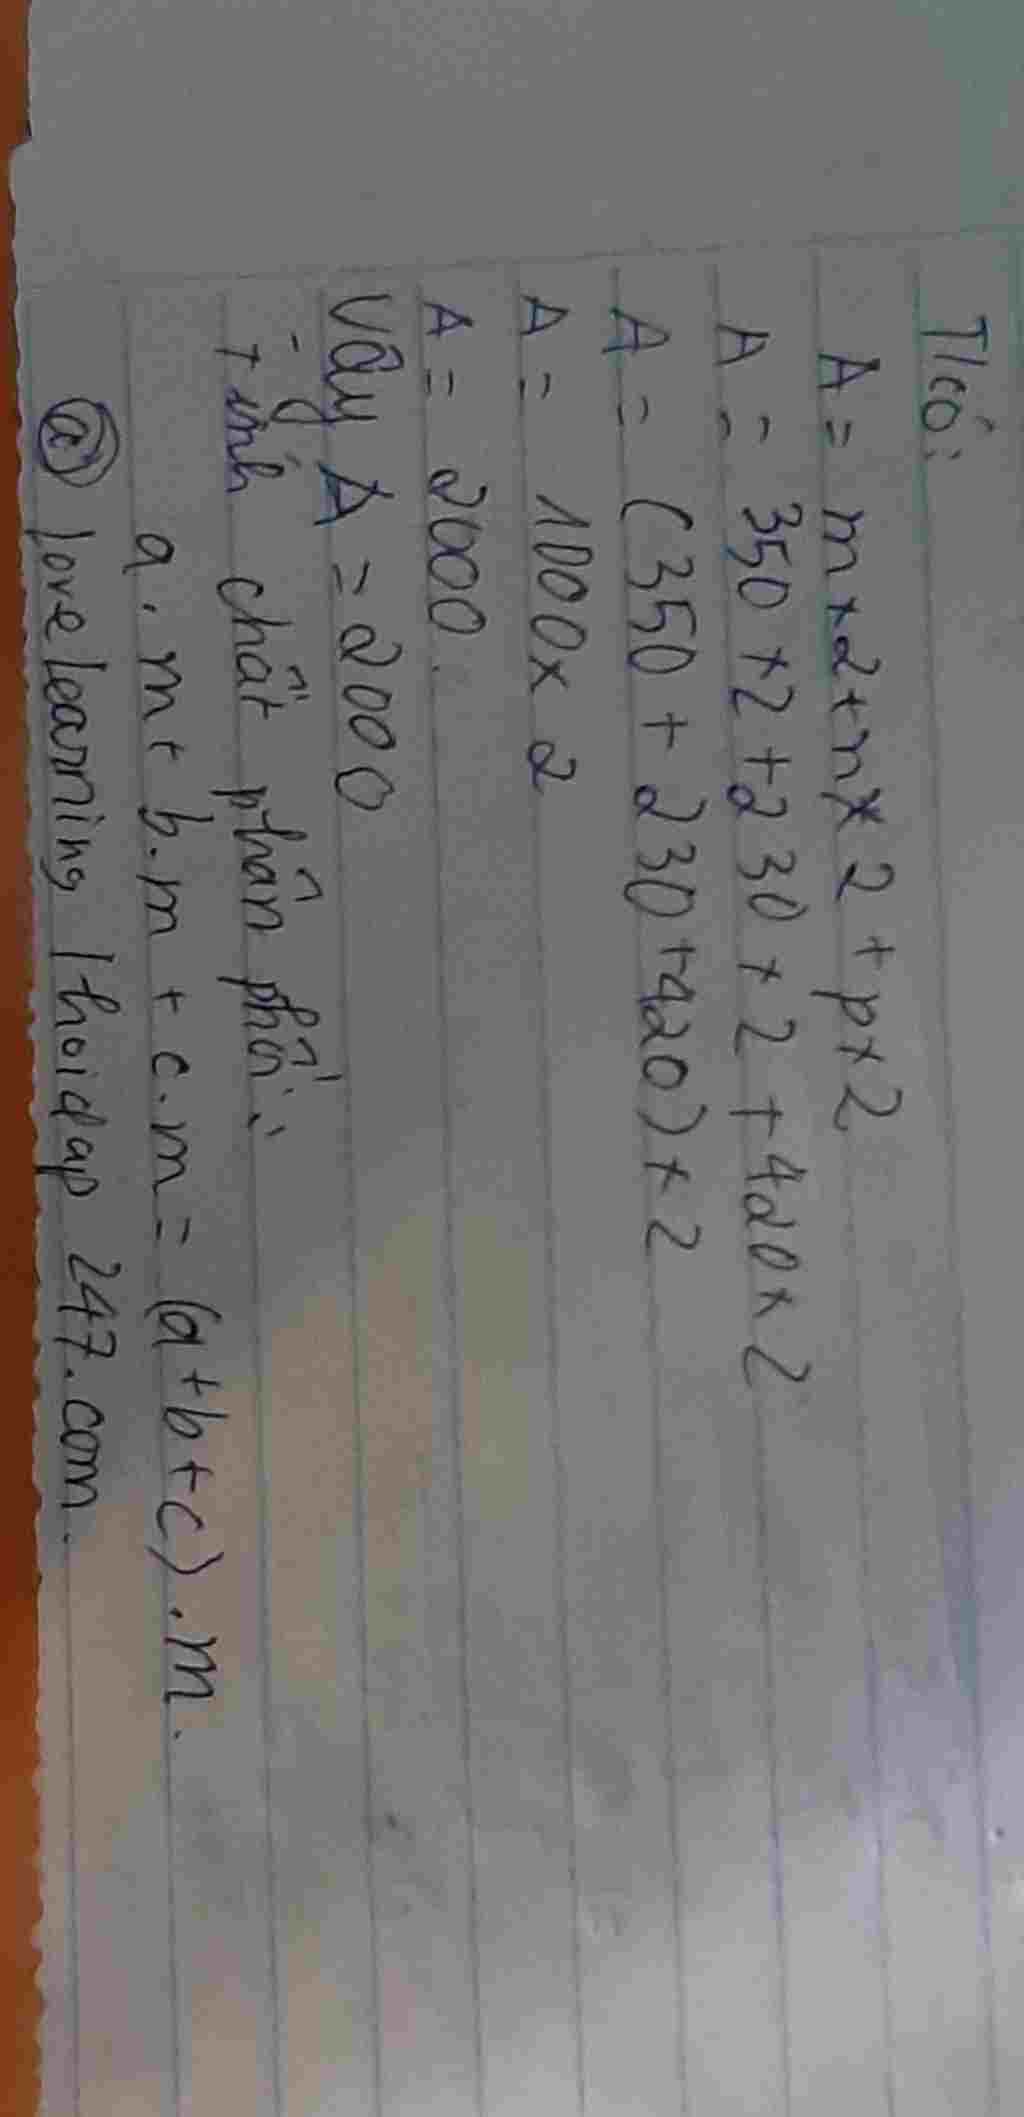 T/có:
A = m×2+n×2+p×2
A = 350×2+230×2+420×2
A = (350+230+420)×2
A = 1000×2
A = 2000.
Vây A = 2000
Tính chất phân phối:
a.m+b.m+c.m=(a+b+c).m.
@ love learning / hoidap 247.com.